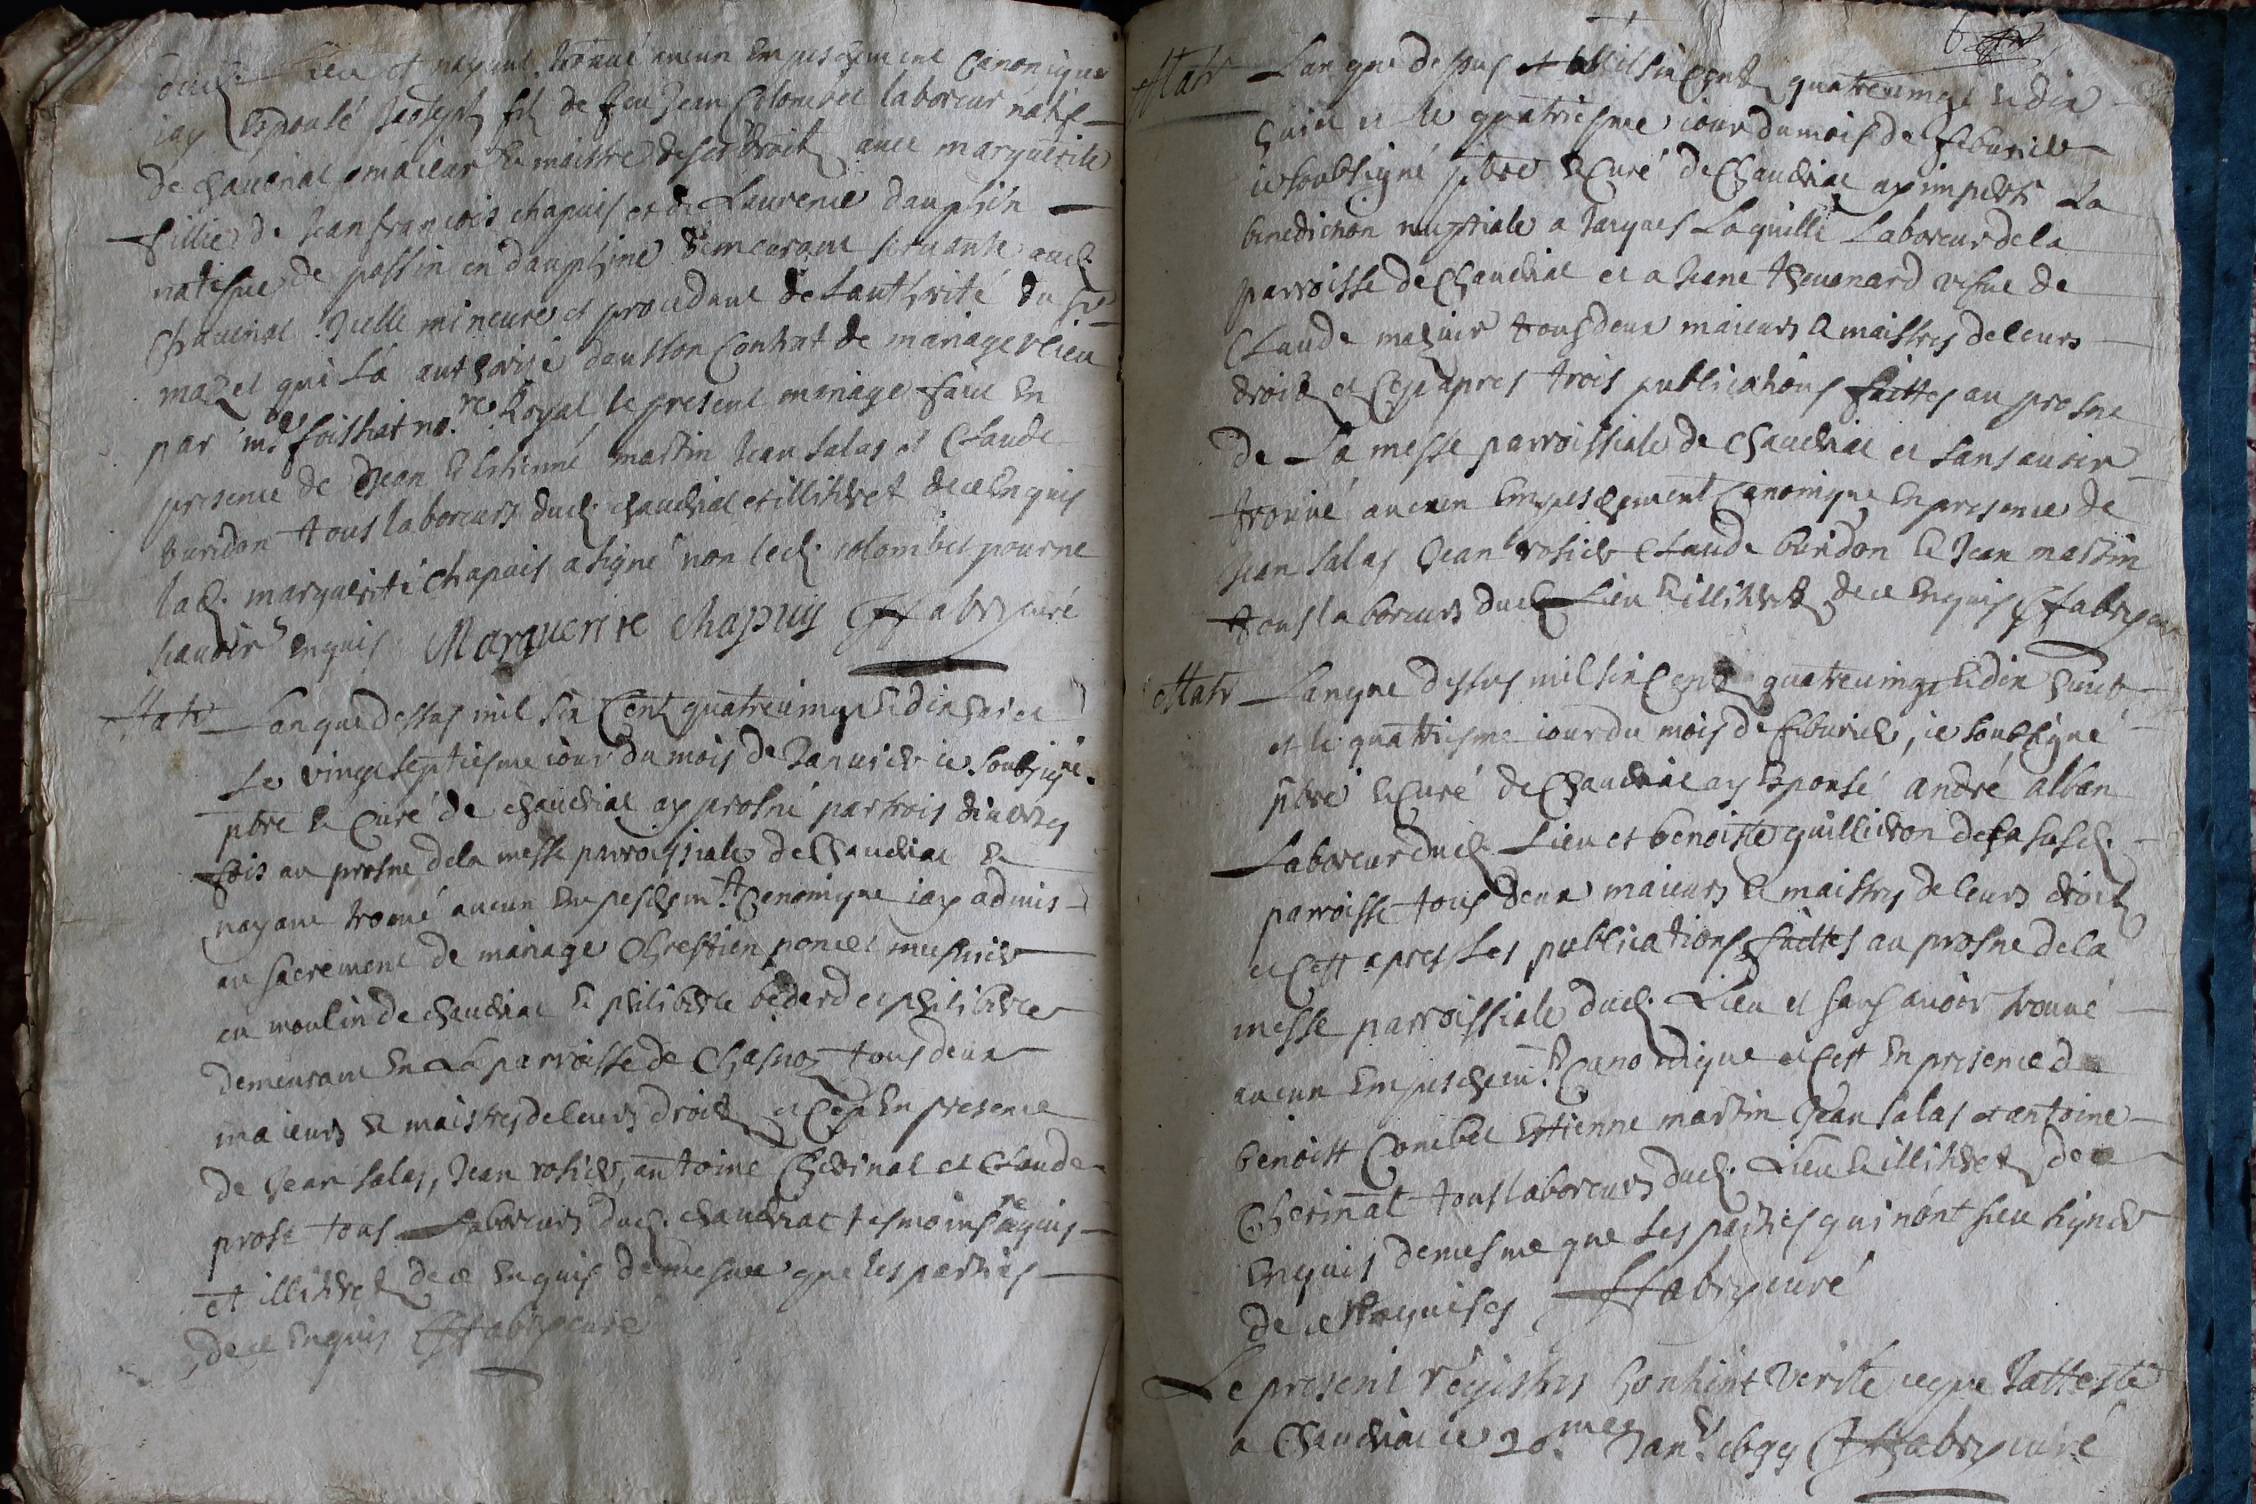 Lieu et nayant trouué aucun Empeschement Canonique
iay Espousé Joseph fils de feu Jean Colombet laboreur natif
de chauériat maieur & maistre deses droits auec marguerite
fillie de Jean francois chapuis et de Laurence dauphin
natifue de passin en dauphiné demeurant seruante aud.
Chaueriat Icelle mineure et procedant de Lauthorité du Sr
mazet qui La authorisé dans son Contrat de mariage recieu
par me foissiat nore Royal le present mariage faict En
presence de Jean & Estienne martin Jean Salas et Claude
buridon tous laboreurs dud. chaueriat et illitérés dece Enquis
lad. marguerite chapuis a signé non led. colombet pour ne
scauoir Enquis Marguerite chapuis Ffabry curé
Matr Lan que dessus mil six Cents quatreuingt & dix huict
Le vingt septiesme iour du mois de Januier ie soubsigné
pbre & Curé de chaueriat ay prosné par trois diuerses
fois au prosne dela messe parroissiale de Chaueriat &
nayant trouué aucun Empeschemt Canonique iay admis
au sacrement de mariage Chrestien poncet meusnier
au moulin de chaueriat & philiberte bedard et philiberte
demeurant En La parroisse de Chasnoz tous deux
maieurs & maistres de leurs droits et Cest En presence
de Jean Salas, Jean rosier, antoine Cherinal et Claude
prost tous Laboreurs dud. chaueriat tesmoins requis
et illitérés de ce Enquis demesme que les parties
de ce Enquis Ffabry curé
Matr Lan que dessus et mil six Cents quatreuingt & dix
huict et le quatriesme iour du mois de feburier
ie soubsigné pbre & Curé de Chaueriat ay imparti La
benediction nuptiale a Jacques Laquille Laboreur dela
parroisse de Chaueriat et a Jeane theuenard vefue de
Claude mazuir tous deux maieurs & maistres de leurs
droits et Cest apres trois publications faittes au prosne
de La messe parroissiale de chaueriat et sans auoir
trouué aucun Empeschement Canonique En presence de
Jean Salas Jean rosier Claude buridon & Jean martin
tous laboreurs dud. Lieu & illitérés de ce Enquis Ffabry curé
Matr Lan que dessus mil six Cents quatreuingt & dix huict
et le quatriesme iour du mois de feburier, ie soubsigné
pbre & Curé de Chaueriat ay Espousé andré alban
Laboreur dud. Lieu et benoiste quillieron de la susd.
parroisse tous deux maieurs & maistres de leurs droits
et Cest apres Les publications faittes au prosne de la
messe parroissiale dud. Lieu et sans auoir trouué
aucun Empeschemt Canonique et Cest En presence de
benoist Combet Estienne martin Jean Salas et antoine
Cherinal tous laboreurs dud. Lieu & illitérés de ce
Enquis demesme que Les parties qui nont sceu signer
de ce Requises Ffabry curé
Le present régistres Contient Verité ceque Jatteste
a Chaueriat ce 20mes Janr 1699 Ffabry curé